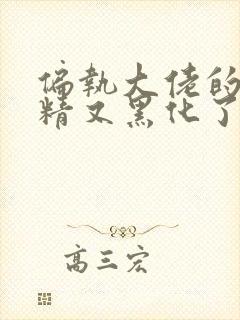 偏执大佬的
精又黑化了
高三宏